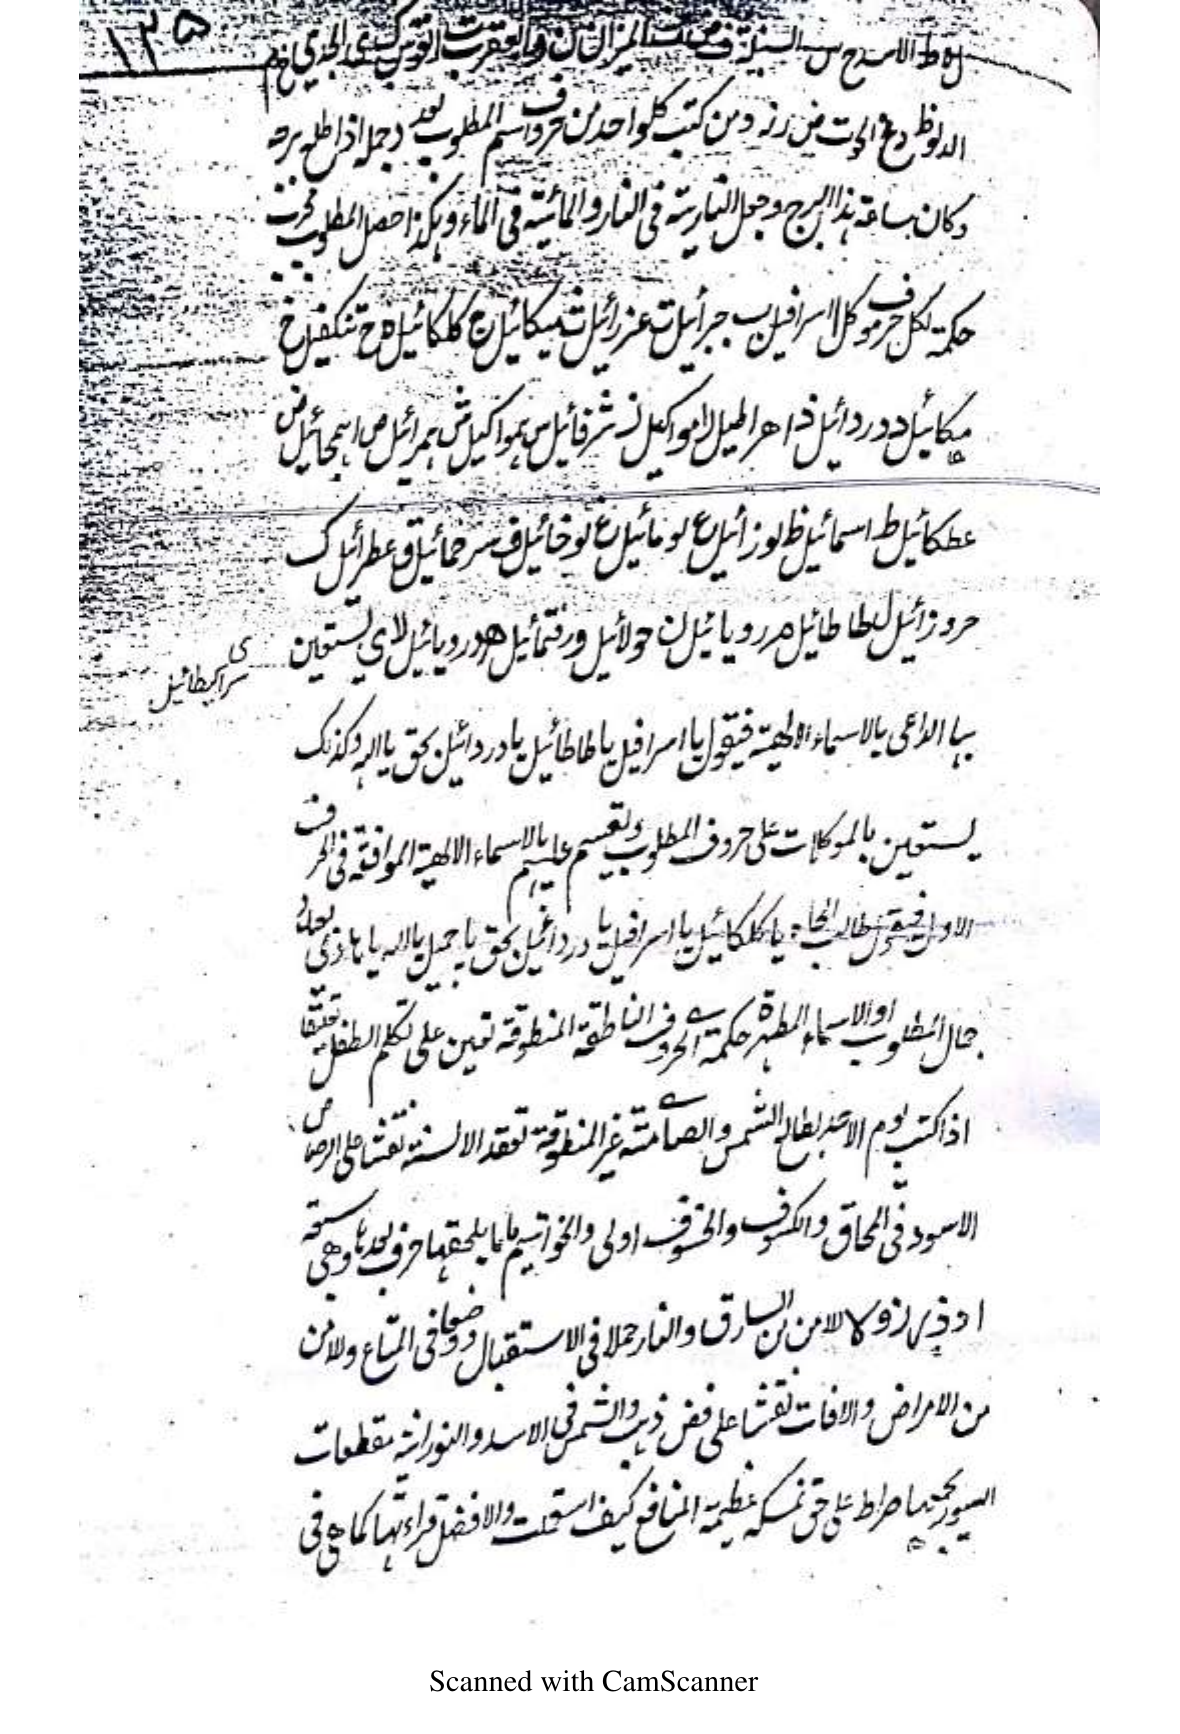 ١٣٥
ط الاسد ح س السنبلة ف ص ت الميزان العقرب القوس الجدي خ م
الدلو ظ د غ الحوت ض ر ومن كتب كلواحد من حروف اسم المطلوب بعد وجمله اذا طلع برجه
وكان ساعة هذا البرج وجعل النارية فى النار والمائية فى الماء وهكذا حصل المطلوب مجرب
حكمة لكل حرف موكل ا اسرافيل ب جبرائيل ت عزرائيل ث ميكائيل ج كلكائيل ح تنكفيل خ
ميكائيل د دردائيل ذ اهراطيل ر امواكيل ز شرفائيل س همواكيل ش همرائيل ص اهجمائيل ض
عطكائيل ط اسمائيل ظ لوزائيل ع لومائيل غ لوخائيل ف سرحمائيل ق عطرائيل ك
حروزائيل ل طاطائيل م رويائيل ن حولائيل و رفتمائيل ه دوريائيل لا ي يستعين
ى سراكيطائيل
بها الداعى بالاسماء الالهية فيقول يا اسرافيل يا طاطائيل يا دردائيل بحق يا اله وكذلك
يستعين بالموكلات على حروف المطلوب وتقسيم عليهم بالاسماء الالهية الموافقة فى الحرف
الاول فيقول طالب الجاه يا كلكائيل يا اسرافيل يا دردائيل بحق يا جميل يا اله يا هادى بعدد
جمال المطلوب او الاسماء المطهرة حكمة الحروف الناطقة المنطوقة تعين على تكلم الطفل تعليقا
اذا كتب يوم الاحد بطالع الشمس والصامتة غير المنطوقة تعقد الالسنة نقشا على الرصاص
الاسود فى المحاق والكسوف والخسوف اولى والخواتيم ما يلحقها حرف بعدها وهى ستة
ا د ذ ر ز و لا للامن من السارق والنار حملا فى الاستقبال ووضعا فى المتاع ولامن
من الامراض والافات نقشا على فص ذهب والشمس فى الاسد والنورانية مقطعات
السور يجمعها صراط على حق نمسكه عظيمة المنافع كيف استعملت والافضل قراءتها كما هى فى
Scanned with CamScanner